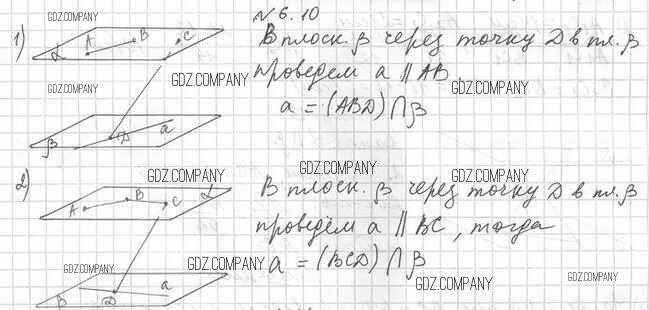 №6.10
1)
A B C
α
β D a
В плоск. β через точку D в пл. β
проведем a ∥ AB.
a = (ABD) ⋂ β
2)
A B C α
β D a
В плоск. β через точку D в пл. β
проведём a ∥ BC, тогда
a = (BCD) ⋂ β
GDZ.COMPANY
GDZ.COMPANY
GDZ.COMPANY
GDZ.COMPANY
GDZ.COMPANY
GDZ.COMPANY
GDZ.COMPANY
GDZ.COMPANY
GDZ.COMPANY
GDZ.COMPANY
GDZ.COMPANY
GDZ.COMPANY